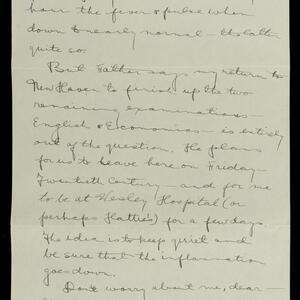 hour the fever & pulse when
down to nearly normal - the latter
quite so.
But Father says my return to
New Haven to finish up the two
remaining examinations -
English & Economics - is entirely
out of the question. He plans
for us to leave here on Friday -
Twentieth Century - and for me
to be at Wesley Hospital (or
perhaps Hattie's) for a few days
The idea is to keep quiet and
be sure that the inflammation
goes down.
Don't worry about me, dear -